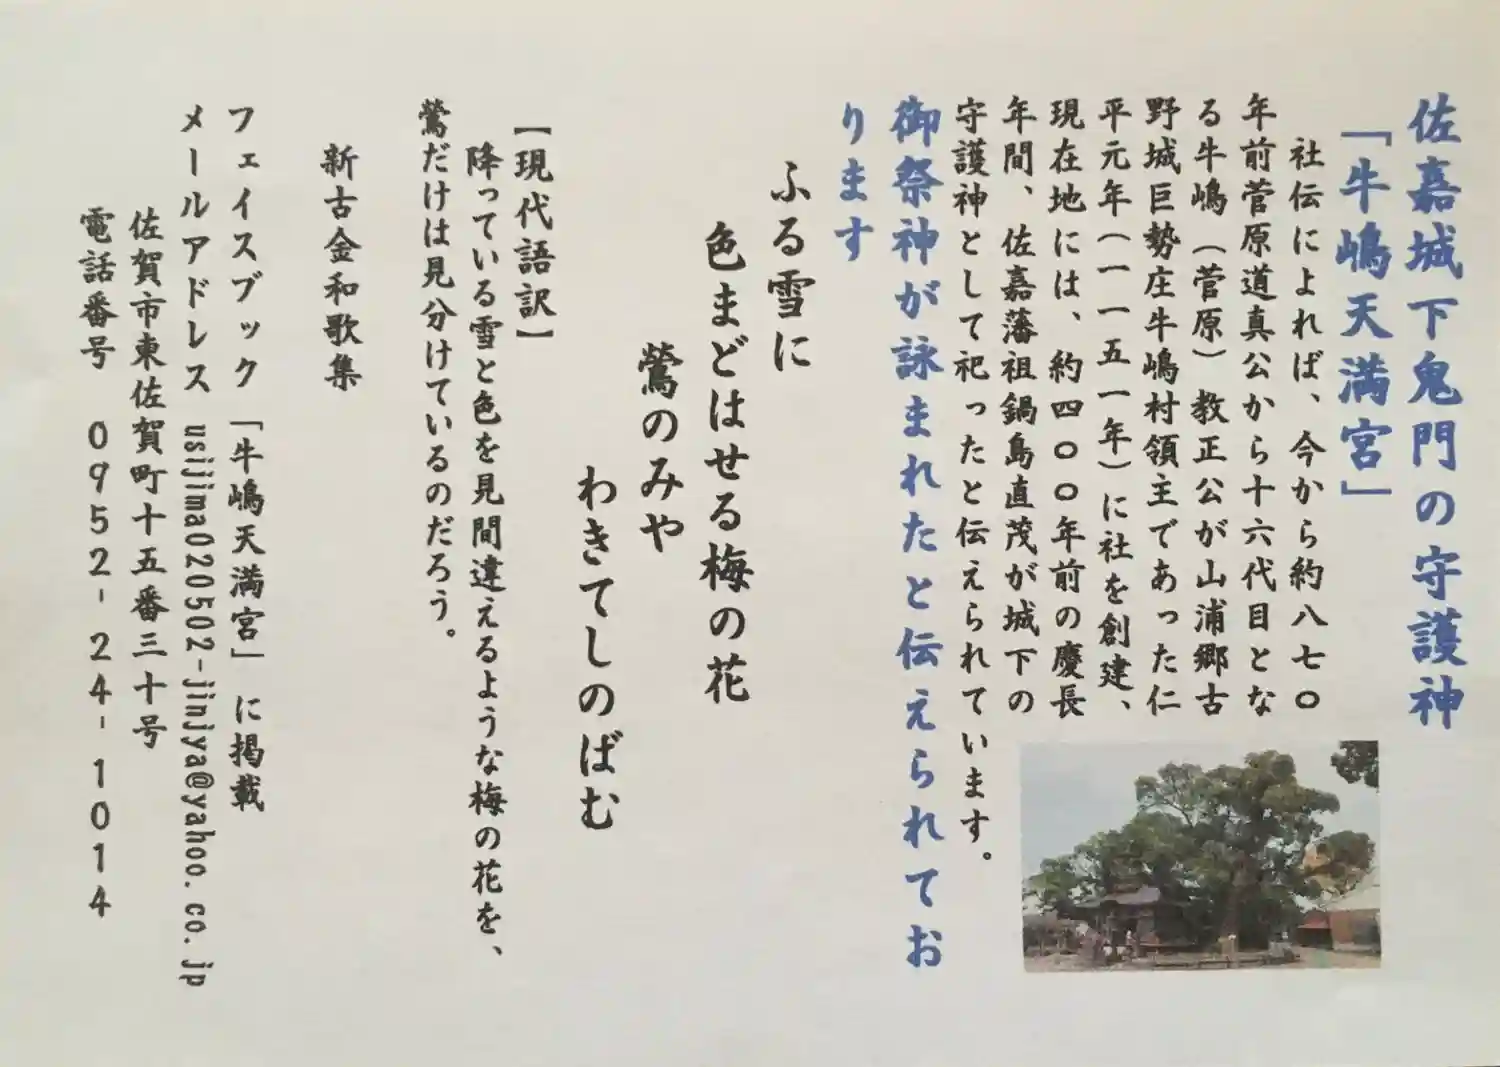 佐嘉城下鬼門の守護神
「牛嶋天満宮」
社伝によれば、今から約八七〇
年前菅原道真公から十六代目とな
る牛嶋（菅原）教正公が山浦郷古
野城巨勢庄牛嶋村領主であった仁
平元年（一一五一年）に社を創建、
現在地には、約四〇〇年前の慶長
年間、佐嘉藩祖鍋島直茂が城下の
守護神として祀ったと伝えられています。
御祭神が詠まれたと伝えられてお
ります
ふる雪に
色まどはせる梅の花
鶯のみや
わきてしのばむ
【現代語訳】
降っている雪と色を見間違えるような梅の花を、
鶯だけは見分けているのだろう。
新古金和歌集
フェイスブック「牛嶋天満宮」に掲載
メールアドレス usijima020502-jinjya@yahoo.co.jp
佐賀市東佐賀町十五番三十号
電話番号 0952-24-1014